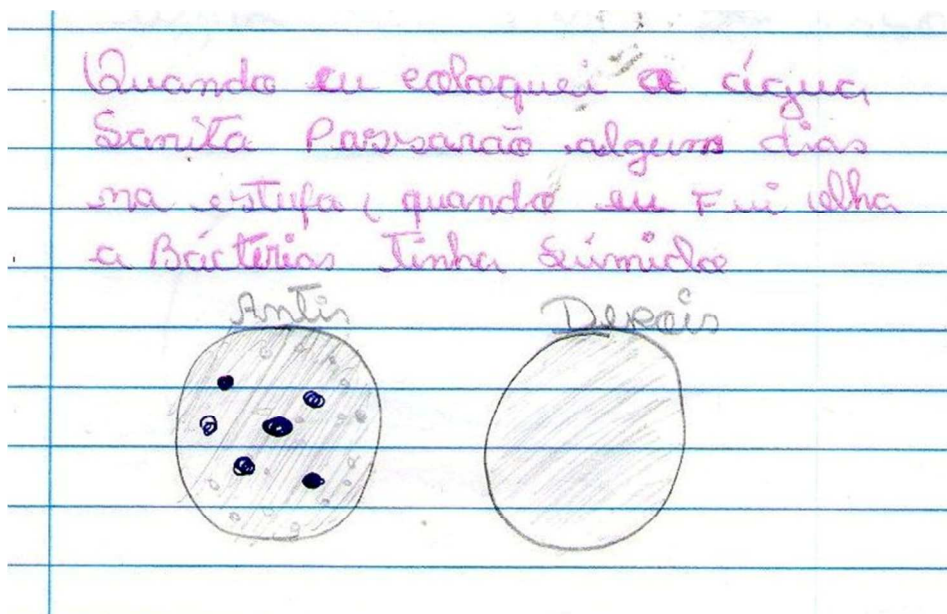 Quando eu coloquei a água
Sanita Passarão algum dias
na estufa, quando eu Fui olha
a Bácterias Tinha Súmido
Antis
Depois